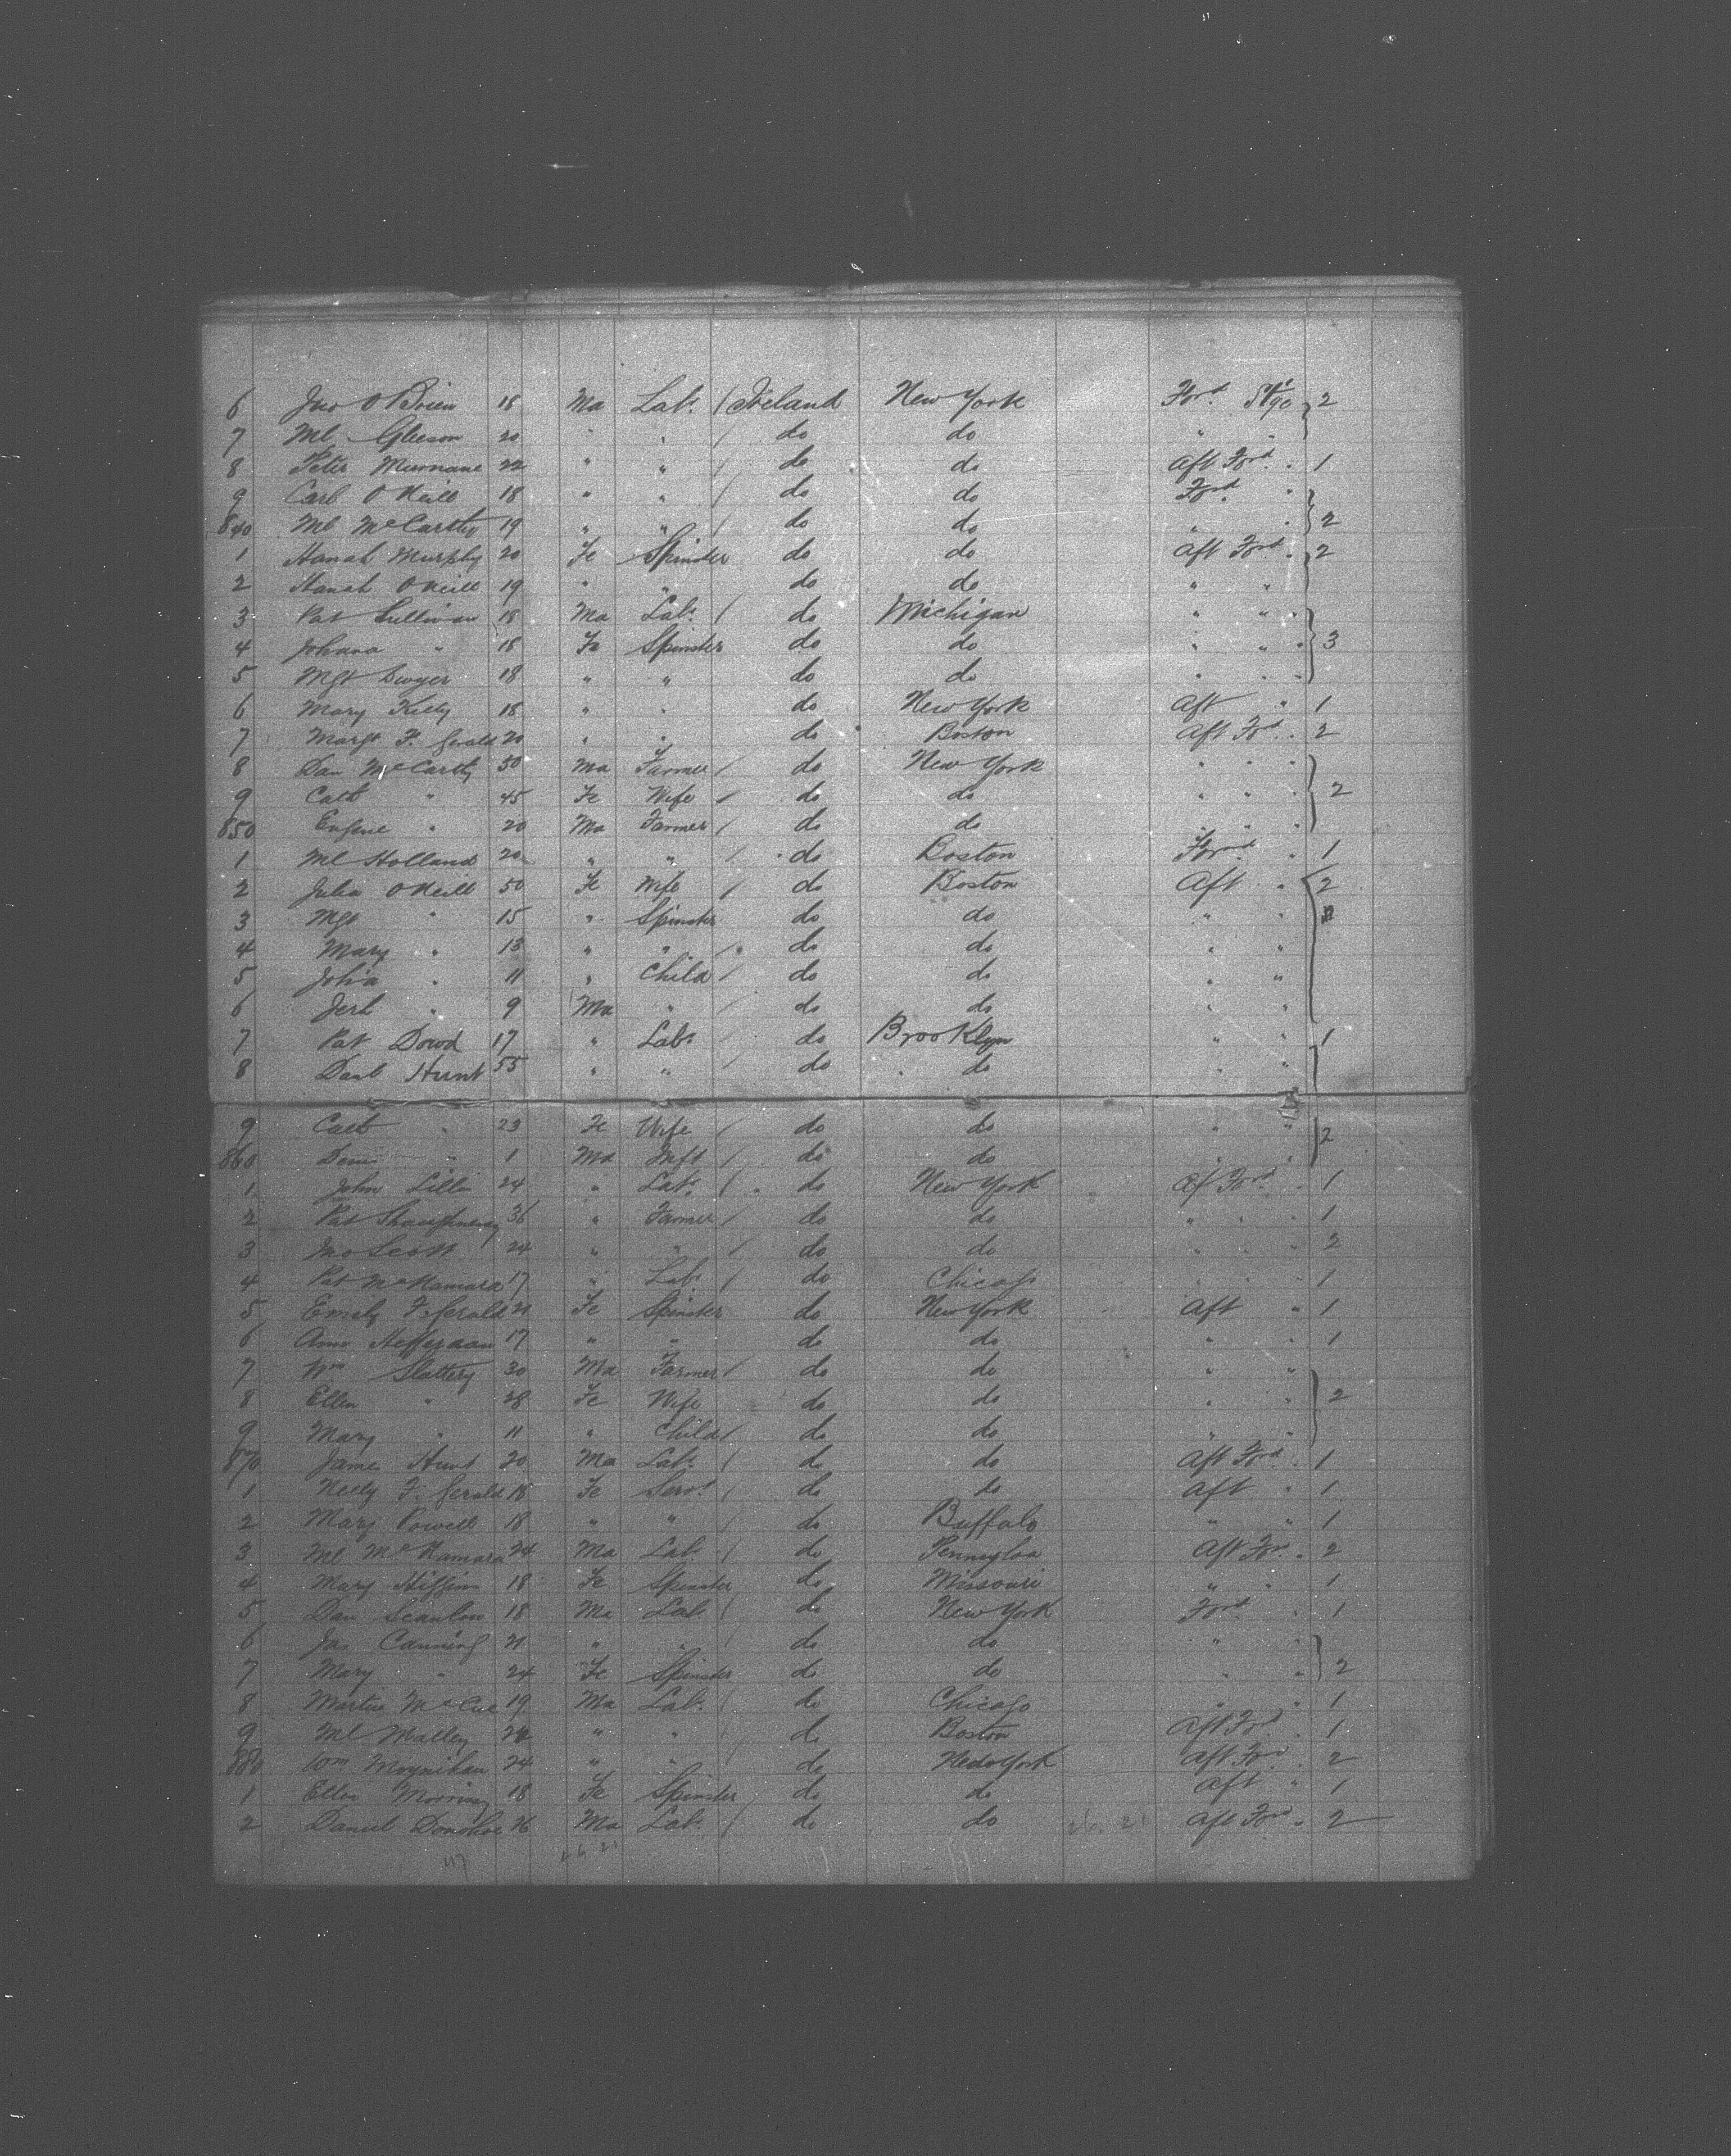 6 Jno O'Brien 18 Ma Labr / Ireland New York Ford Stge 2
7 Ml Gleeson 20 " " / do do " "
8 Peter Murnane 22 " " / do do Aft Ford " 1
9 Carl O'Neill 18 " " / do do Ford "
840 Ml McCarthy 19 " " / do do " " 2
1 Hanah Murphy 20 Fe Spinster do do Aft Ford " 2
2 Hanah O'Neill 19 " " do do " "
3 Pat Sullivan 18 Ma Labr / do Michigan " " "
4 Johana " 18 Fe Spinster do do " " " 3
5 Mgt Dwyer 18 " " do do " " "
6 Mary Kelly 18 " " do New York Aft " 1
7 Margt F. Gerald 20 " " do Boston Aft Ford " 2
8 Dan McCarthy 50 Ma Farmer / do New York " " "
9 Cath " 45 Fe Wife / do do " " " 2
850 Eugene " 20 Ma Farmer / do do " " "
1 Ml Holland 20 " " / do Boston Ford " 1
2 Julia O'Neill 50 Fe Wife / do Boston Aft " 2
3 Mgt " 15 " Spinster do do " "
4 Mary " 13 " " / do do " "
5 Joha " 11 " Child / do do " "
6 Jerh " 9 Ma " / do do " "
7 Pat Dowd 17 " Labr / do Brooklyn " " 1
8 Danl Hunt 55 " " / do do " "
9 Cath " 23 Fe Wife / do do " " 2
860 " 1 Ma Inft / do do " "
1 John 24 " Labr / do New York Af Ford " 1
2 Pat Shaughnessy 36 " Farmer / do do " " " 1
3 Jno Scott 24 " " / do do " " " 2
4 Pat McNamara 17 " Labr / do Chicago " " " 1
5 Emily F. Gerald 21 Fe Spinster do New York Aft " 1
6 Ann Heffernan 17 " " do do " " 1
7 Wm Slattery 30 Ma Farmer / do do " "
8 Ellen " 28 Fe Wife do do " " 2
9 Mary " 11 " Child / do do " "
870 James Hunt 20 Ma Labr / do do Aft Ford " 1
1 Nelly F. Gerald 18 Fe Servt / do do Aft " 1
2 Mary Powell 18 " " / do Buffalo " " 1
3 Ml McNamara 24 Ma Labr / do Aft Ford " 2
4 Mary Higgins 18 Fe Spinster do Missouri " " 1
5 Dan Scanlon 18 Ma Labr / do New York Ford " 1
6 Jas Canning 21 " " / do do " "
7 Mary " 24 Fe Spinster do do " " 2
8 Martin McCue 19 Ma Labr / do Chicago " " 1
9 Ml Malley " " / do Boston Aft Ford " 1
880 Wm Moynihan 24 " " do New York Aft Ford " 2
1 Ellen 18 Fe Spinster do do Aft " 1
2 Daniel Donohoe 26 Ma Labr / do do Aft Ford " 2
47 26 21 26 21